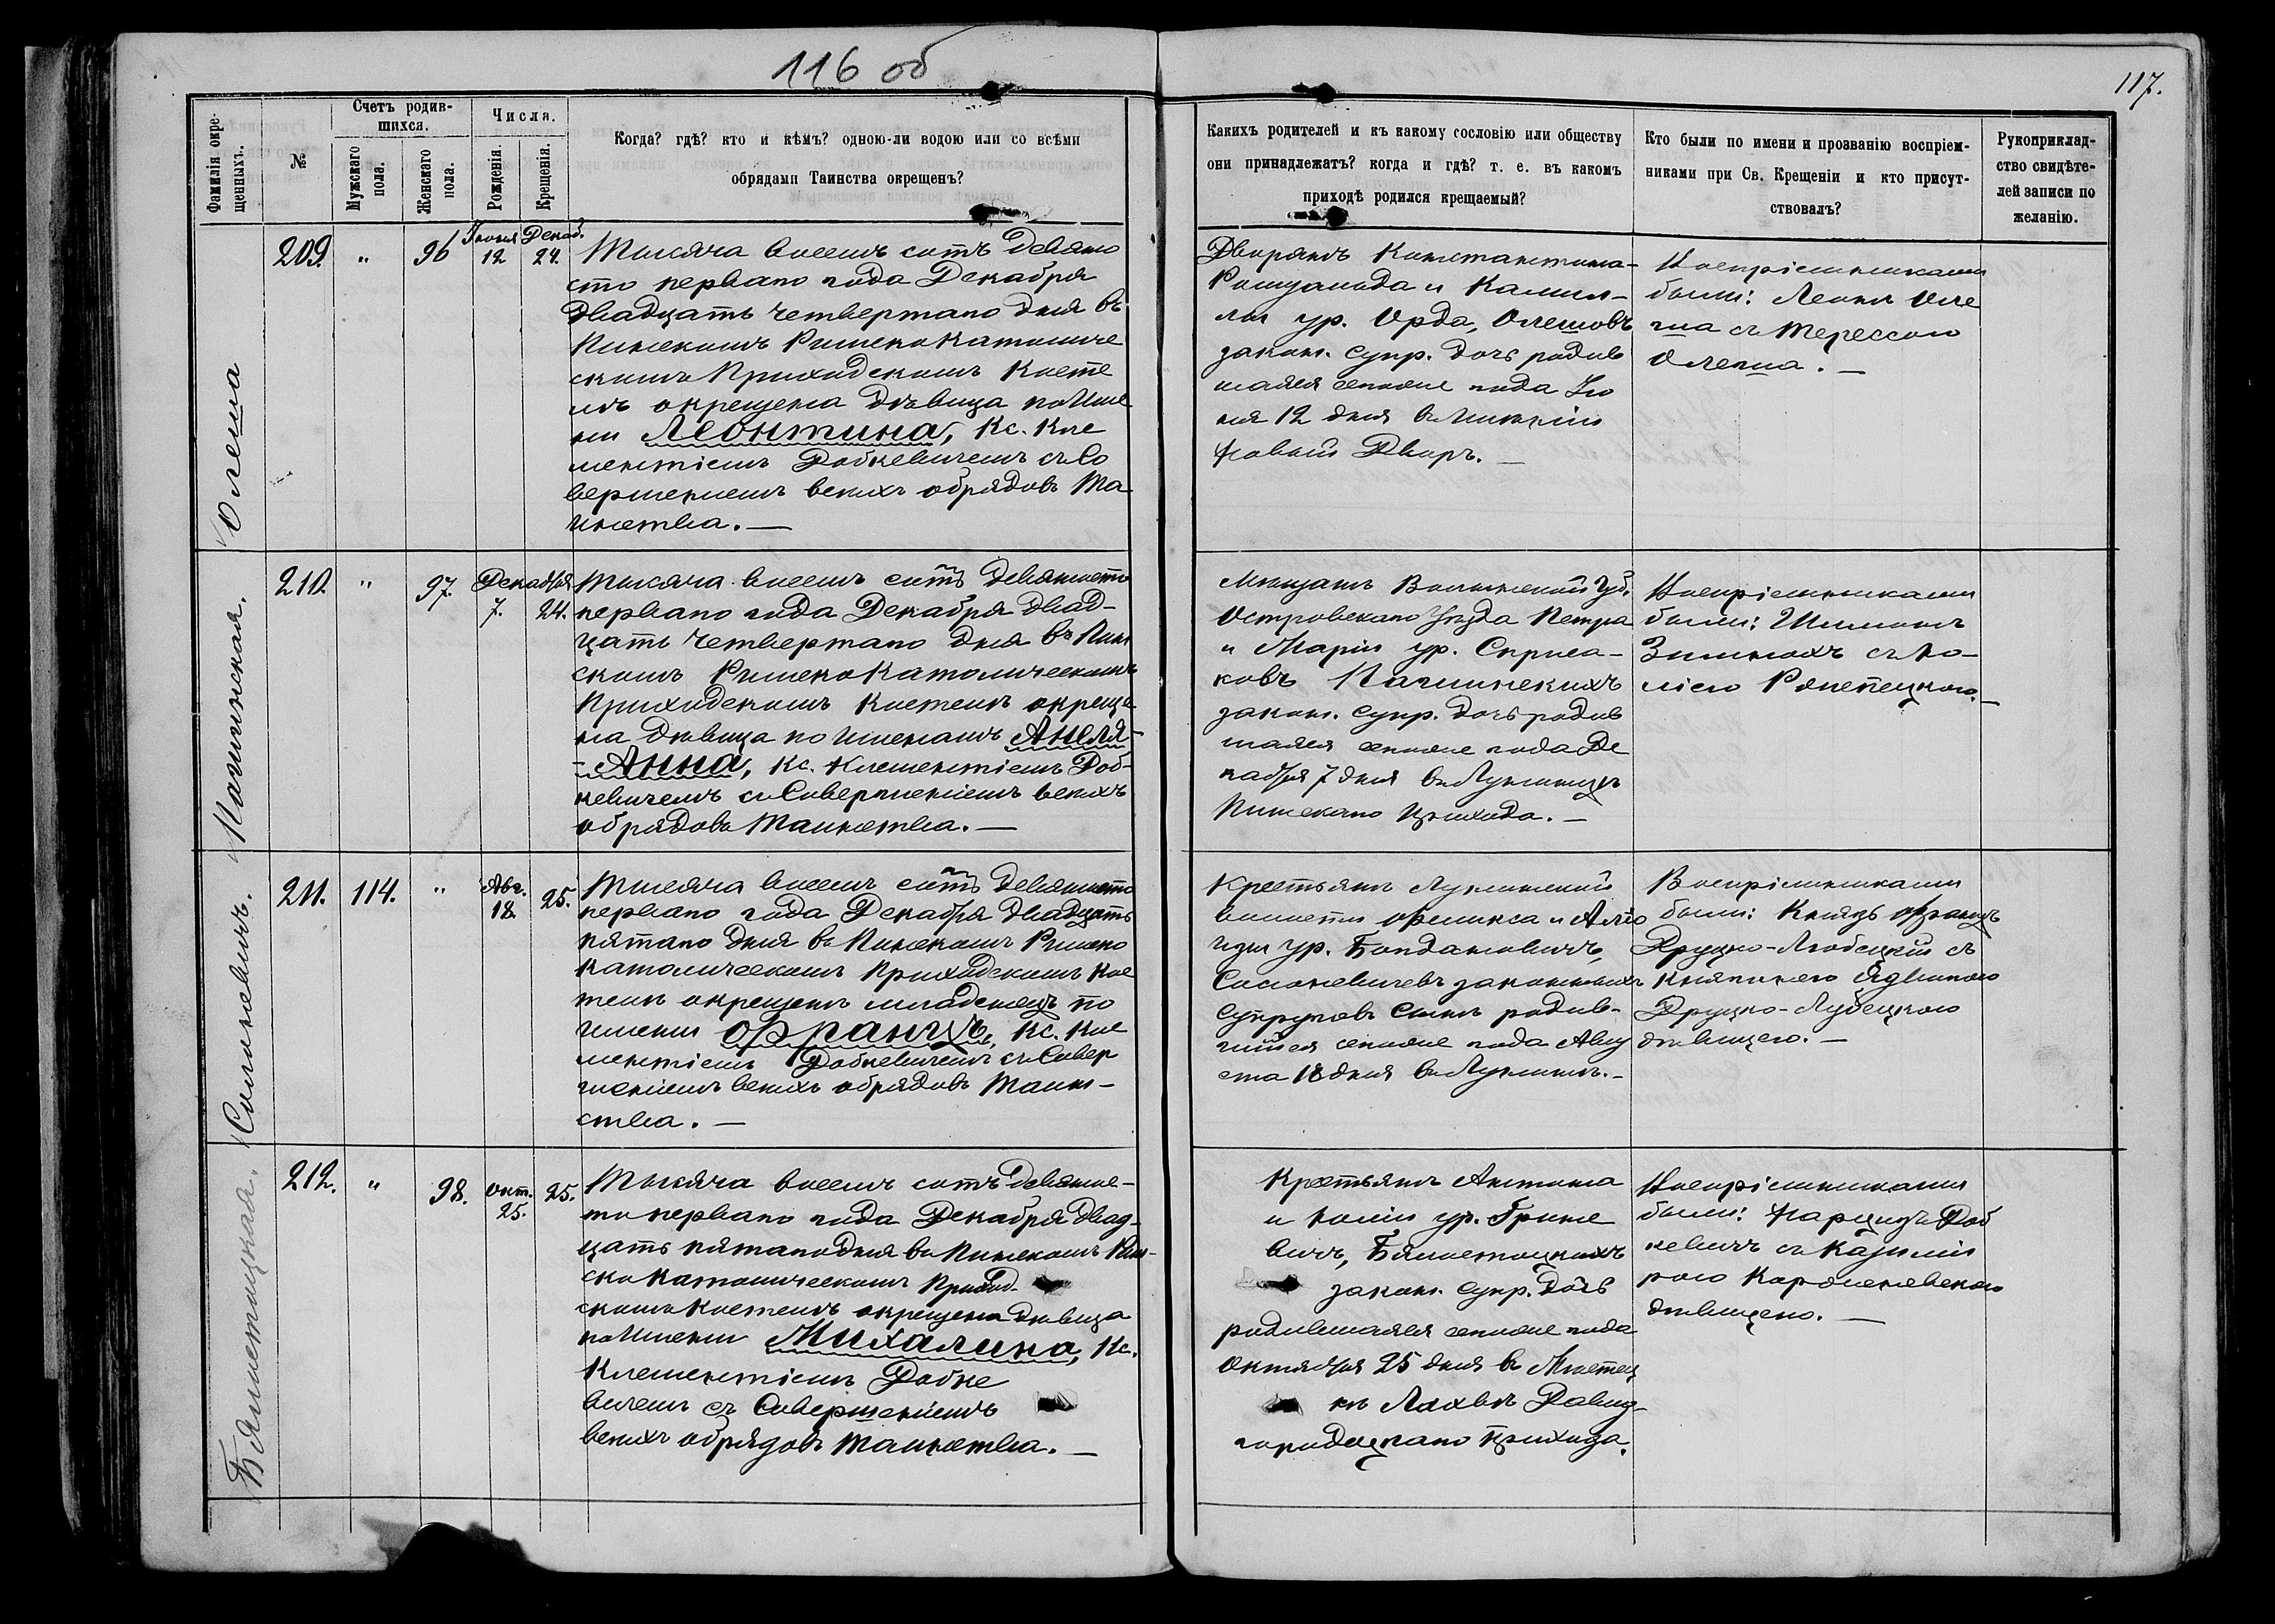 116 об
117.
Фамилія окре-
щенныхъ.
№
Счетъ родив-
шихся.
Мужскаго
пола.
Женскаго
пола.
Числа.
Рожденія.
Крещенія.
Когда? гдѣ? кто и кѣмъ? одною-ли водою или со всѣми
обрядами Таинства окрещенъ?
Какихъ родителей и къ какому сословію или обществу
они принадлежатъ? когда и гдѣ? т. е. въ какомъ
приходѣ родился крещаемый?
Кто были по имени и прозванію воспріем-
никами при Св. Крещеніи и кто присут-
ствовалъ?
Рукоприклад-
ство свидѣте-
лей записи по
желанію.
Олеша
209. " 96 Іюня 12 Декаб. 24.
Тысяча восемь сотъ девяно
сто перваго года Декабря
двадцать четвертаго дня въ
Пинскомъ Римско Католиче
скомъ Приходскомъ Косте
лѣ окрещена дѣвица по Име
ни Леонтина, Кс. Кле
ментіемъ Добкевичемъ съ Со
вершеніемъ всѣхъ обрядовъ Та
инства. —
Дворянъ Константина-
Ромуальда и Камил-
ліи ур. Орда, Олешовъ
закон. Супр. дочь родив
шаяся сегоже года Ію
ня 12 дня въ Имѣніи
Новый Дворъ. —
Воспріемниками
были: Леонъ Оле
ша съ Терессою
Олеша. —
210. " 97. Декабря 7. 24.
Тысяча восемь сотъ девяносто
перваго года Декабря двад-
цать четвертаго дня въ Пин
скомъ Римско Католическомъ
Приходскомъ Костелѣ окреще
на дѣвица по Именамъ Анеля-
-Анна, Кс. Клементіемъ Доб-
кевичемъ съ Совершеніемъ всѣхъ
обрядовъ Таинства. —
Мѣщанъ Волынской Губ,
Островскаго Уѣзда Петра
и Маріи ур.
закон. Супр. дочь родив
шаяся сегоже года Де
кабря 7 дня въ Лунинцѣ
Пинскаго Прихода. —
Воспріемниками
были:
211. 114. " Авг. 18. 25.
Тысяча восемь сотъ девяносто
перваго года Декабря двадцать
пятаго дня въ Пинскомъ Римско
Католическомъ Приходскомъ Кос
телѣ окрещенъ младенецъ по
имени Францъ, Кс. Кле
ментіемъ Добкевичемъ съ Совер
шеніемъ всѣхъ обрядовъ Таин-
ства. —
Крестьянъ Лунинской
волости Феликса и Алло
изіи ур. Богдановичъ,
законныхъ
Супруговъ Сынъ родив-
шійся сегоже года Авгу
ста 18 дня въ Лунинѣ. —
Воспріемниками
были: Князь Францъ
Друцко-Любецкій съ
Княжною Ядвигою
Друцко-Любецкою
дѣвицею. —
Бялостоцкая.
212. " 98. Окт. 25. 25.
Тысяча восемь сотъ девянос-
то перваго года Декабря двад-
цать пятаго дня въ Пинскомъ Рим-
ско Католическомъ Приход-
скомъ Костелѣ окрещена дѣвица
по Имени Михалина, Кс.
Клементіемъ Добке
вичемъ съ Совершеніемъ
всѣхъ обрядовъ Таинства. —
Крестьянъ Антона
и Юліи ур. Грине
вичъ, Бялостоцкихъ
закон. Супр. дочь
родившаяся сегоже года
Октября 25 дня въ Мѣстеч
кѣ Лахвѣ Давид-
городецкаго Прихода.
Воспріемниками
были: Нарцизъ Доб
кевичъ съ Казими
рою
дѣвицею. —